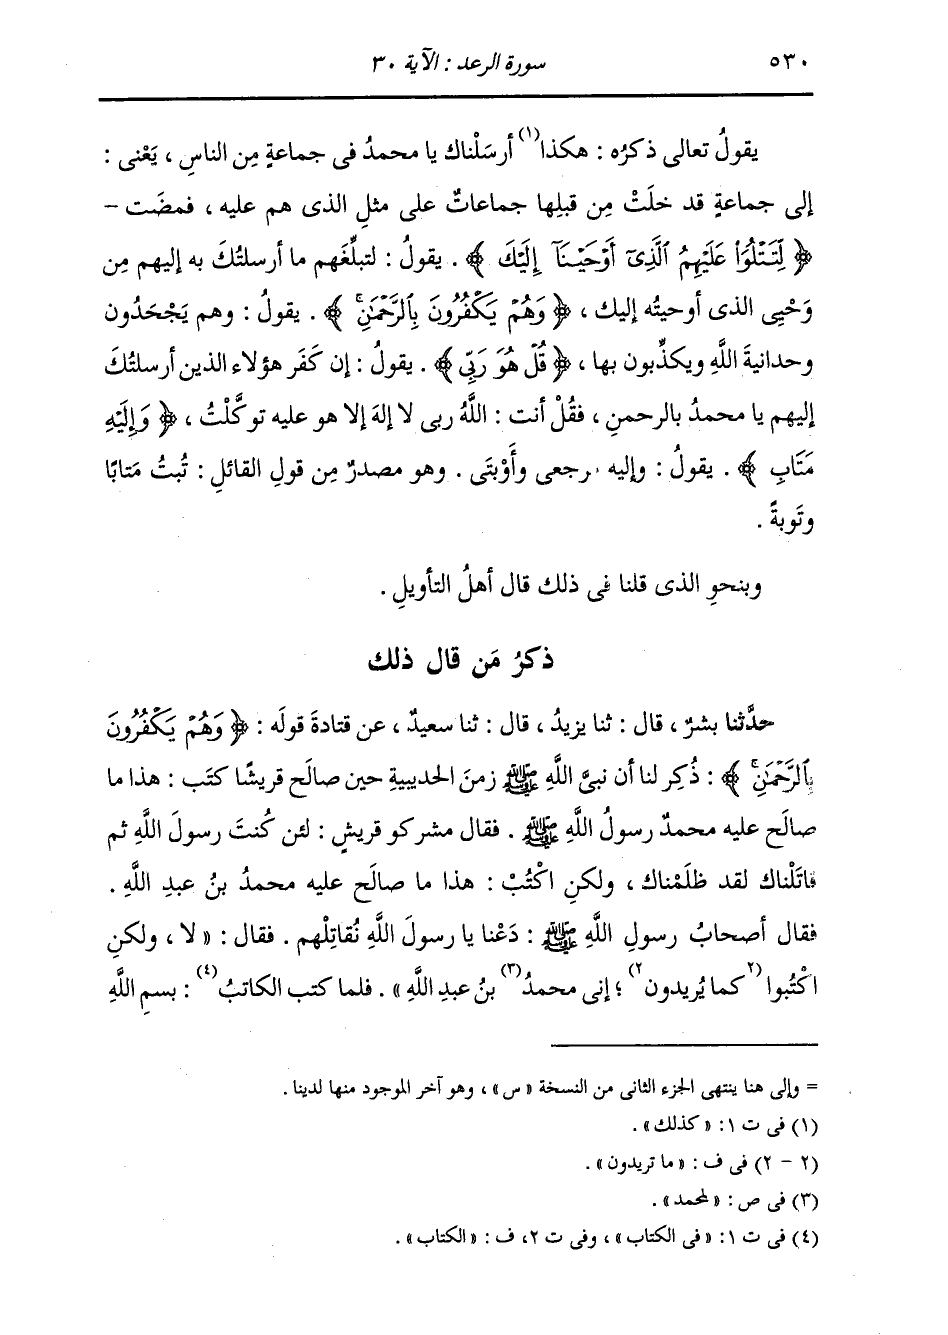 ٥٣٠ سورة الرعد : الآية ٣٠
يقولُ تعالى ذكرُه : هكذا(١) أرسَلْناك يا محمدُ فى جماعةٍ مِن الناسِ ، يَعْنى :
إلى جماعةٍ قد خلَتْ مِن قبلِها جماعاتٌ على مثلِ الذى هم عليه ، فمضَت –
﴿ لِّتَتْلُوَا۟ عَلَيْهِمُ ٱلَّذِىٓ أَوْحَيْنَآ إِلَيْكَ ﴾ . يقولُ : لتبلِّغَهم ما أرسلتُكَ به إليهم مِن
وَحْيِى الذى أوحيتُه إليك ، ﴿ وَهُمْ يَكْفُرُونَ بِٱلرَّحْمَٰنِ ۚ ﴾ . يقولُ : وهم يَجْحَدُون
وحدانيةَ اللَّهِ ويكذِّبون بها ، ﴿ قُلْ هُوَ رَبِّى ﴾ . يقولُ : إن كَفَر هؤلاء الذين أرسلتُكَ
إليهم يا محمدُ بالرحمنِ ، فقُلْ أنت : اللَّهُ ربى لا إلهَ إلا هو عليه توكَّلْتُ ، ﴿ وَإِلَيْهِ
مَتَابِ ﴾ . يقولُ : وإليه رجعى وأَوْبتَى . وهو مصدرٌ مِن قولِ القائلِ : تُبتُ مَتابًا
وتَوبةً .
وبنحوِ الذى قلنا فى ذلك قال أهلُ التأويلِ .
ذكرُ مَن قال ذلك
حدَّثنا بشرٌ ، قال : ثنا يزيدُ ، قال : ثنا سعيدٌ ، عن قتادةَ قولَه : ﴿ وَهُمْ يَكْفُرُونَ
بِٱلرَّحْمَٰنِ ۚ ﴾ : ذُكِر لنا أن نبىَّ اللَّهِ ﷺ زمنَ الحديبيةِ حين صالَح قريشًا كتَب : هذا ما
صالَح عليه محمدٌ رسولُ اللَّهِ ﷺ . فقال مشركو قريشٍ : لئن كُنتَ رسولَ اللَّهِ ثم
قاتَلْناك لقد ظلَمْناك ، ولكنِ اكْتُبْ : هذا ما صالَح عليه محمدُ بنُ عبدِ اللَّهِ .
فقال أصحابُ رسولِ اللَّهِ ﷺ : دَعْنا يا رسولَ اللَّهِ نُقاتِلْهم . فقال : « لا ، ولكنِ
اكْتُبوا (٢كما يُريدون٢) ؛ إنى محمدُ(٣) بنُ عبدِ اللَّهِ » . فلما كتب الكاتبُ(٤) : بسمِ اللَّهِ
= وإلى هنا ينتهى الجزء الثانى من النسخة « س » ، وهو آخر الموجود منها لدينا .
(١) فى ت ١ : « كذلك » .
(٢ – ٢) فى ف : « ما تريدون » .
(٣) فى ص : « لمحمد » .
(٤) فى ت ١ : « فى الكتاب » ، وفى ت ٢، ف : « الكتاب » .